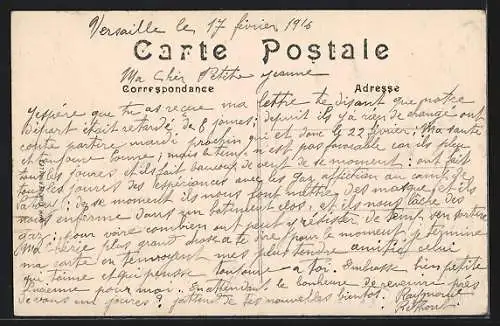 Versaille le 17 février 1916
Carte Postale
Ma Chèr Petite Jeanne
Correspondance
Adresse
J'espère que tu as reçue ma lettre te disant que notre
départ était retardé de 8 jours; depuis il y a rien de change ont
conte partire mardi prochin qui et donc le 22 février; Ma santé
et toujour bonne; mais le temp n'est pas favorable car ils pleu
tous les jours et ils fait beaucoup de vent de se moment; ont fait
tous les jours des expériences avec les gaz
de se moment ils nous font mettre des masque et ils
nous enferme dans un batiment clos, et ils nous lâche des
gaz; pour voire combien ont peut y résister
Ma Chérie plus grand chose a te dire pour le moment je termine
ma carte en t'envoyent mes plus tendre amitié celui
qui t'aime et qui pensse toujour a toi. Embrasse bien petite
pour moi. En attendant le bonheure de revenire près
de vous un jour? j'attent de tes nouvelles bientot. Raymond